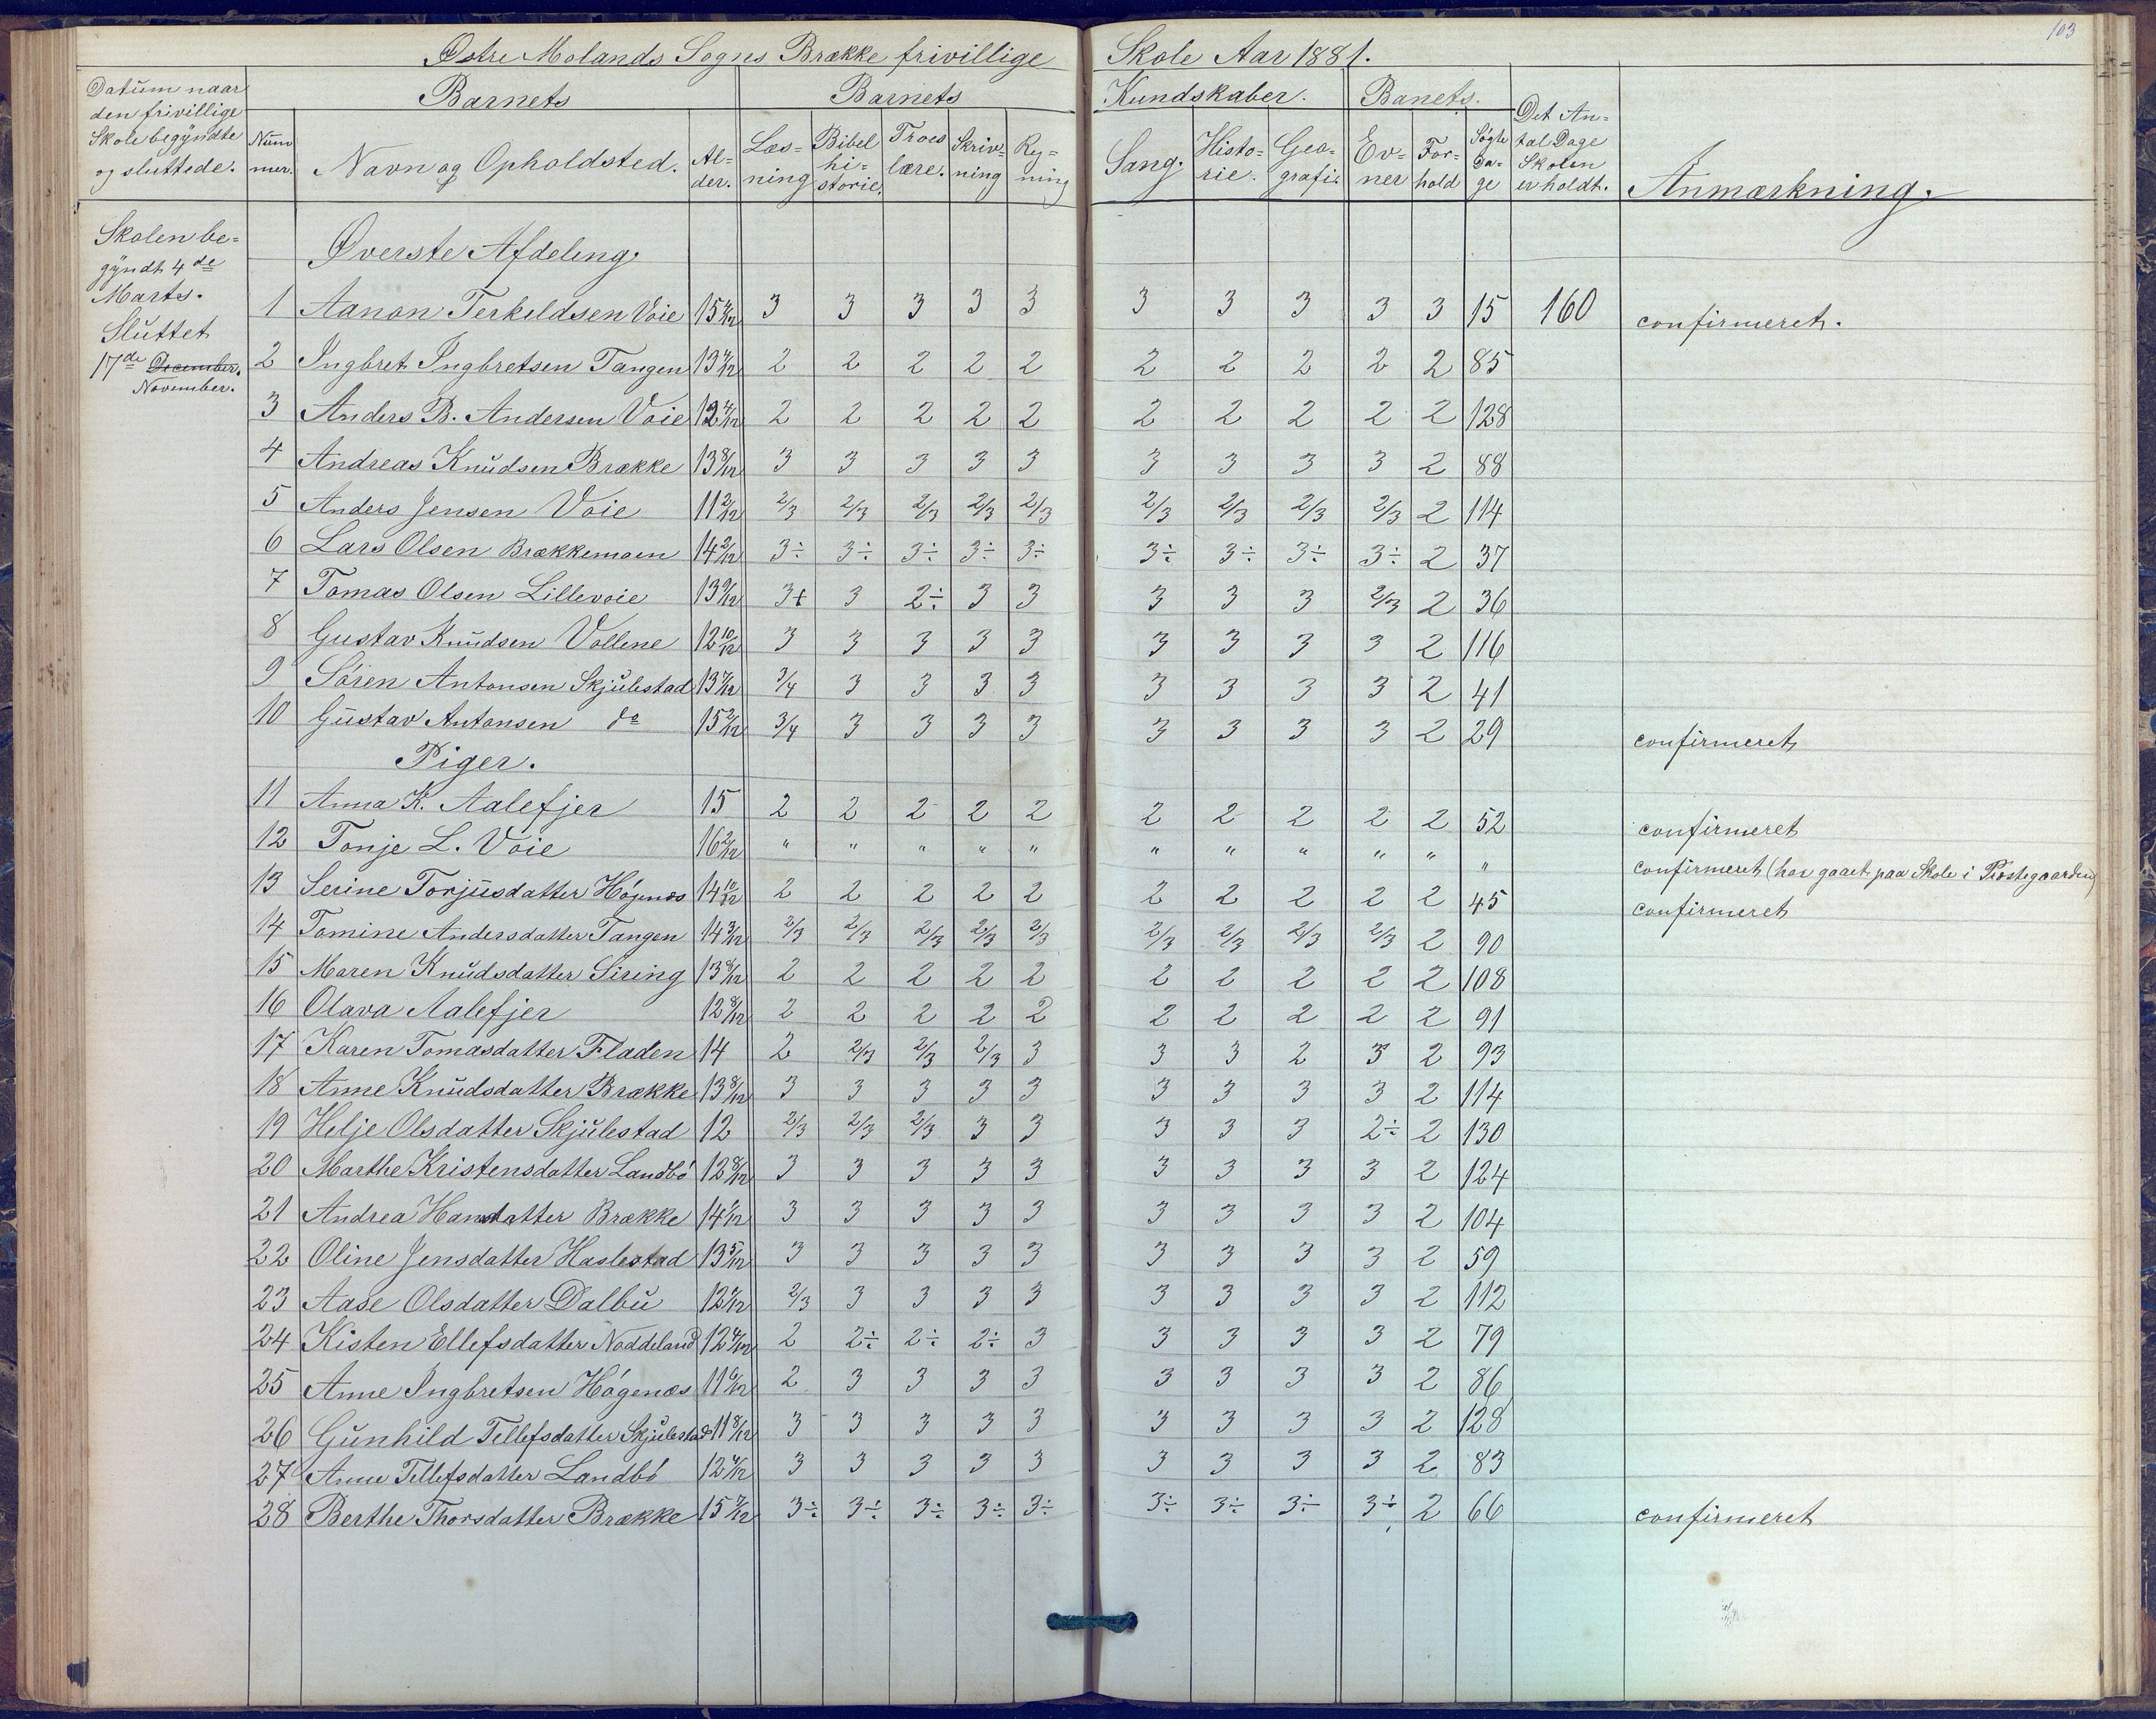 103
Østre Molands Sogns Brække frivillige Skole Aar 1881.
Datum naar den frivillige Skole begyndte og sluttede.
Barnets
Barnets Kundskaber.
Banets.
Det An=
tal Dage
Skolen
er holdt.
Anmærkning.
Num
mer.
Navn og Opholdsted.
Al=
der.
Læs=
ning
Bibel
hi=
storie.
Troes
lære.
Skriv=
ning
Reg=
ning
Sang.
Histo=
rie.
Geo=
grafi.
Ev=
ner
For=
hold
Søgte
Da=
ge
Skolen be=
gyndt 4de
Marts.
Sluttet
17de December.
November.
Øverste Afdeling.
1 Aanon Terkeldsen Voie 15 3 3 3 3 3 3 3 3 3 3 15 160 confirmeret.
2 Ingbret Ingbretsen Tangen 13 2 2 2 2 2 2 2 2 2 2 85
3 Anders B. Andersen Voie 12 2 2 2 2 2 2 2 2 2 2 128
4 Andreas Knudsen Brække 13 8/12 3 3 3 3 3 3 3 3 3 2 88
5 Anders Jensen Voie 11 2/12 2/3 2/3 2/3 2/3 2/3 2/3 2/3 2/3 2/3 2 114
6 Lars Olsen Brækkemoen 14 2/12 3÷ 3÷ 3÷ 3÷ 3÷ 3÷ 3÷ 3÷ 3÷ 2 37
7 Tomas Olsen Lillevoie 13 9/12 3+ 3 2÷ 3 3 3 3 3 2/3 2 36
8 Gustav Knudsen Vollene 12 10/12 3 3 3 3 3 3 3 3 3 2 116
9 Søren Antonsen Skjulestad 13 7/12 3/4 3 3 3 3 3 3 3 3 2 41
10 Gustav Antonsen do 15 2/12 3/4 3 3 3 3 3 3 3 3 2 29 confirmeret
Piger.
11 Anna K. Aalefjer 15 2 2 2 2 2 2 2 2 2 2 52 confirmeret
12 Tonje L. Voie 16 2/12 " " " " " " " " " " " confirmeret (har gaaet paa Skole i Præstegaarden)
13 Serine Torjusdatter Høgenæs 14 10/12 2 2 2 2 2 2 2 2 2 2 45 confirmeret
14 Tomine Andersdatter Tangen 14 3/12 2/3 2/3 2/3 2/3 2/3 2/3 2/3 2/3 2/3 2 90
15 Maren Knudsdatter Siring 13 8/12 2 2 2 2 2 2 2 2 2 2 108
16 Olava Aalefjer 12 8/12 2 2 2 2 2 2 2 2 2 2 91
17 Karen Tomasdatter Fladen 14 2 2/3 2/3 2/3 3 3 3 2 3 2 93
18 Anne Knudsdatter Brække 13 8/12 3 3 3 3 3 3 3 3 3 2 114
19 Helje Olsdatter Skjulestad 12 2/3 2/3 2/3 3 3 3 3 3 2÷ 2 130
20 Marthe Kristensdatter Landbø 12 8/12 3 3 3 3 3 3 3 3 3 2 124
21 Andrea Hansdatter Brække 14 1/12 3 3 3 3 3 3 3 3 3 2 104
22 Oline Jensdatter Haslestad 13 5/12 3 3 3 3 3 3 3 3 3 2 59
23 Aase Olsdatter Dalbu 12 2/3 3 3 3 3 3 3 3 3 2 112
24 Kisten Ellefsdatter Noddeland 12 4/12 2 2÷ 2÷ 2÷ 3 3 3 3 3 2 79
25 Anne Ingbretsen Høgenæs 11 6/12 2 3 3 3 3 3 3 3 3 2 86
26 Gunhild Tellefsdatter Skjulestad 11 8/12 3 3 3 3 3 3 3 3 3 2 128
27 Anne Tellefsdatter Landbø 12 3 3 3 3 3 3 3 3 3 2 83
28 Berthe Thorsdatter Brække 15 7/12 3÷ 3÷ 3÷ 3÷ 3÷ 3÷ 3÷ 3÷ 3÷ 2 66 confirmeret